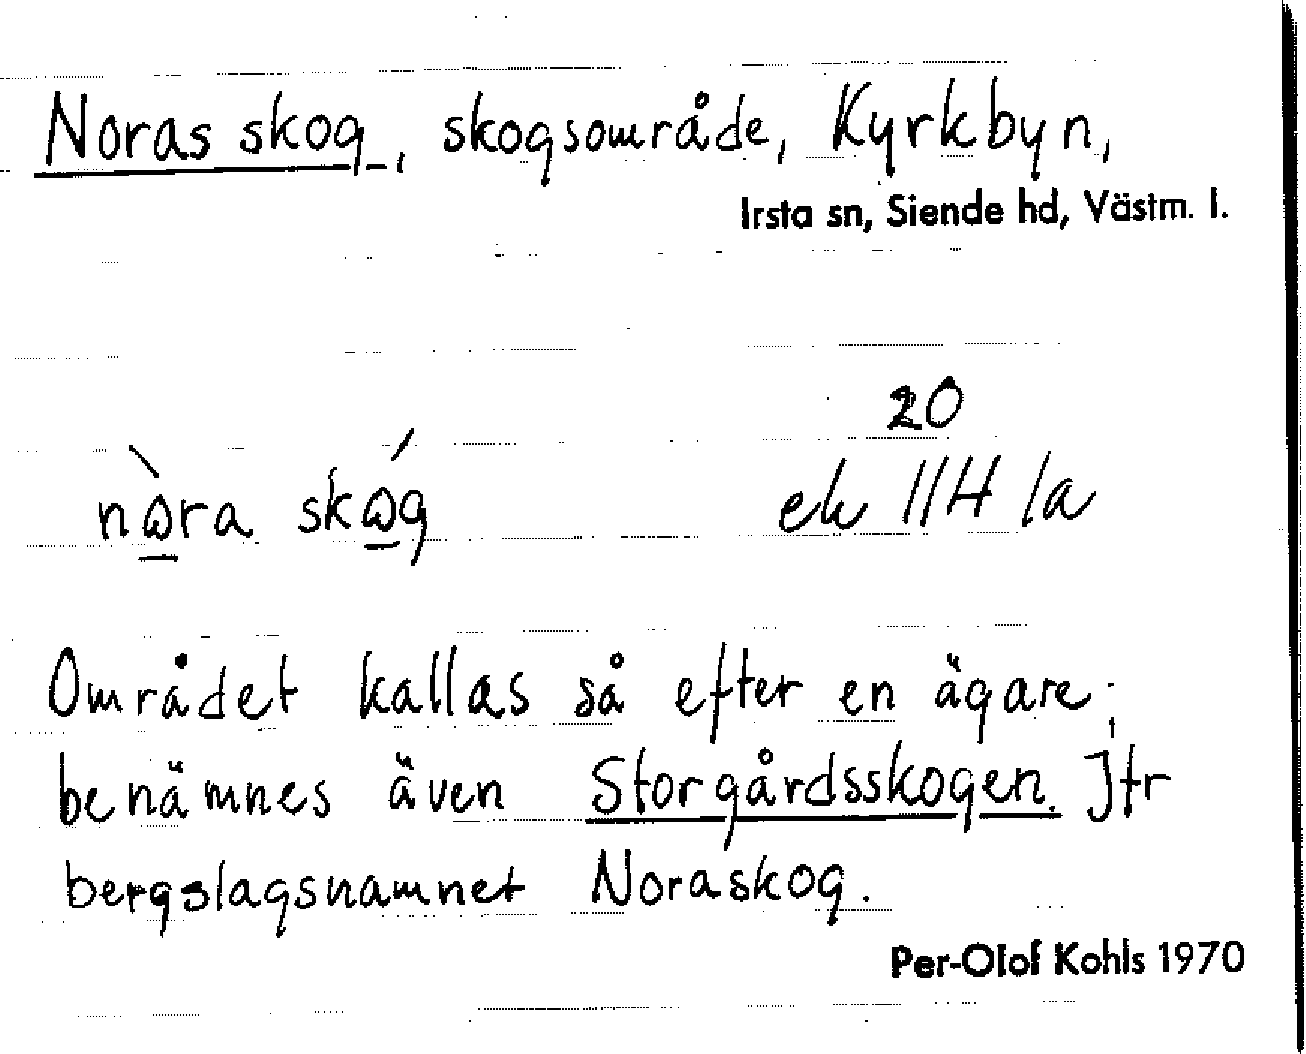 Noras skog, skogsområde, Kyrkbyn,
Irsta sn, Siende hd, Västm. l.
20
nò̱ra skó̱g ek 11H 1a
Området kallas så efter en ägare;
benämnes även Storgårdsskogen. Jfr
bergslagsnamnet Noraskog.
Per-Olof Kohls 1970